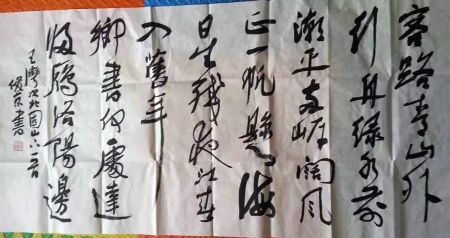 客路青山外
行舟绿水前
潮平两岸阔风
正一帆懸海
日生殘夜江春
入舊年
鄉書何處達
歸雁洛陽邊
王灣次北固山下
書